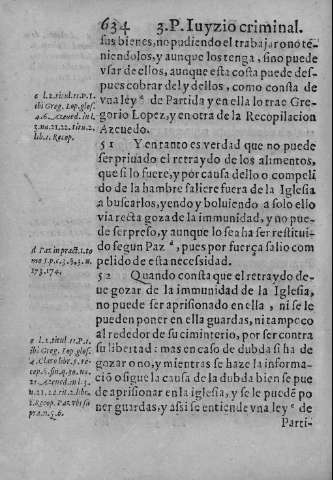 634 3.P. Iuyzio criminal.
sus bienes, no pudiendo el trabajar o no te-
niendolos, y aunque los tenga, si no puede
vsar de ellos, aunque esta costa puede des-
pues cobrar del y dellos, como consta de
vna ley c de Partida y en ella lo trae Gre-
gorio Lopez, y en otra de la Recopilacion
Azeuedo.
c l.2.titul.11.P.1.
ibi Greg. Lop. glos.
4.6. Azeued. in l.
3.nu.21.22. titu.2.
lib.1. Recop.
51 Y en tanto es verdad que no puede
ser priuado el retraydo de los alimentos,
que si lo fuere, y por causa dello o compeli
do de la hambre saliere fuera de la Iglesia
a buscarlos, yendo y boluiendo a solo ello
via recta goza de la immunidad, y no pue-
de ser preso, y aunque lo sea ha ser restitui-
do segun Paz d, pues por fuerça salio com
pelido de esta necessidad.
d Paz in pract. 1.to
mo 5.p.c.3.§.3.n.
173.174.
52 Quando consta que el retraydo de-
ue gozar de la immunidad de la Iglesia,
no puede ser aprisionado en ella, ni se le
pueden poner en ella guardas, ni tampoco
al rededor de su ciminterio, por ser contra
su libertad: mas en caso de dubda si ha de
gozar o no, y mientras se haze la informa-
ciõ o sigue la causa de la dubda bien se pue
de aprisionar en la iglesia, y se le puedẽ po
ner guardas, y assi se entiende vna ley e de
e l.2. titul.11.P.1.
ibi Greg. Lop. glos.
Parti-